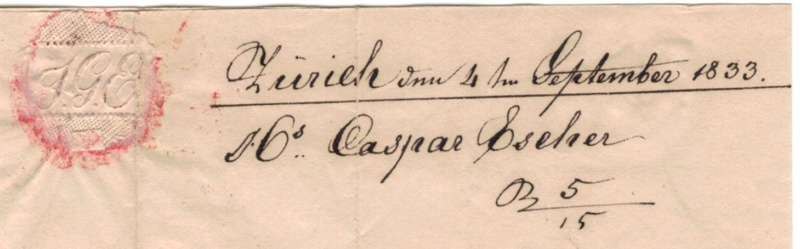 J.G.E
Zürich den 4 tn September 1833.
Hs. Caspar Escher
R 5
15